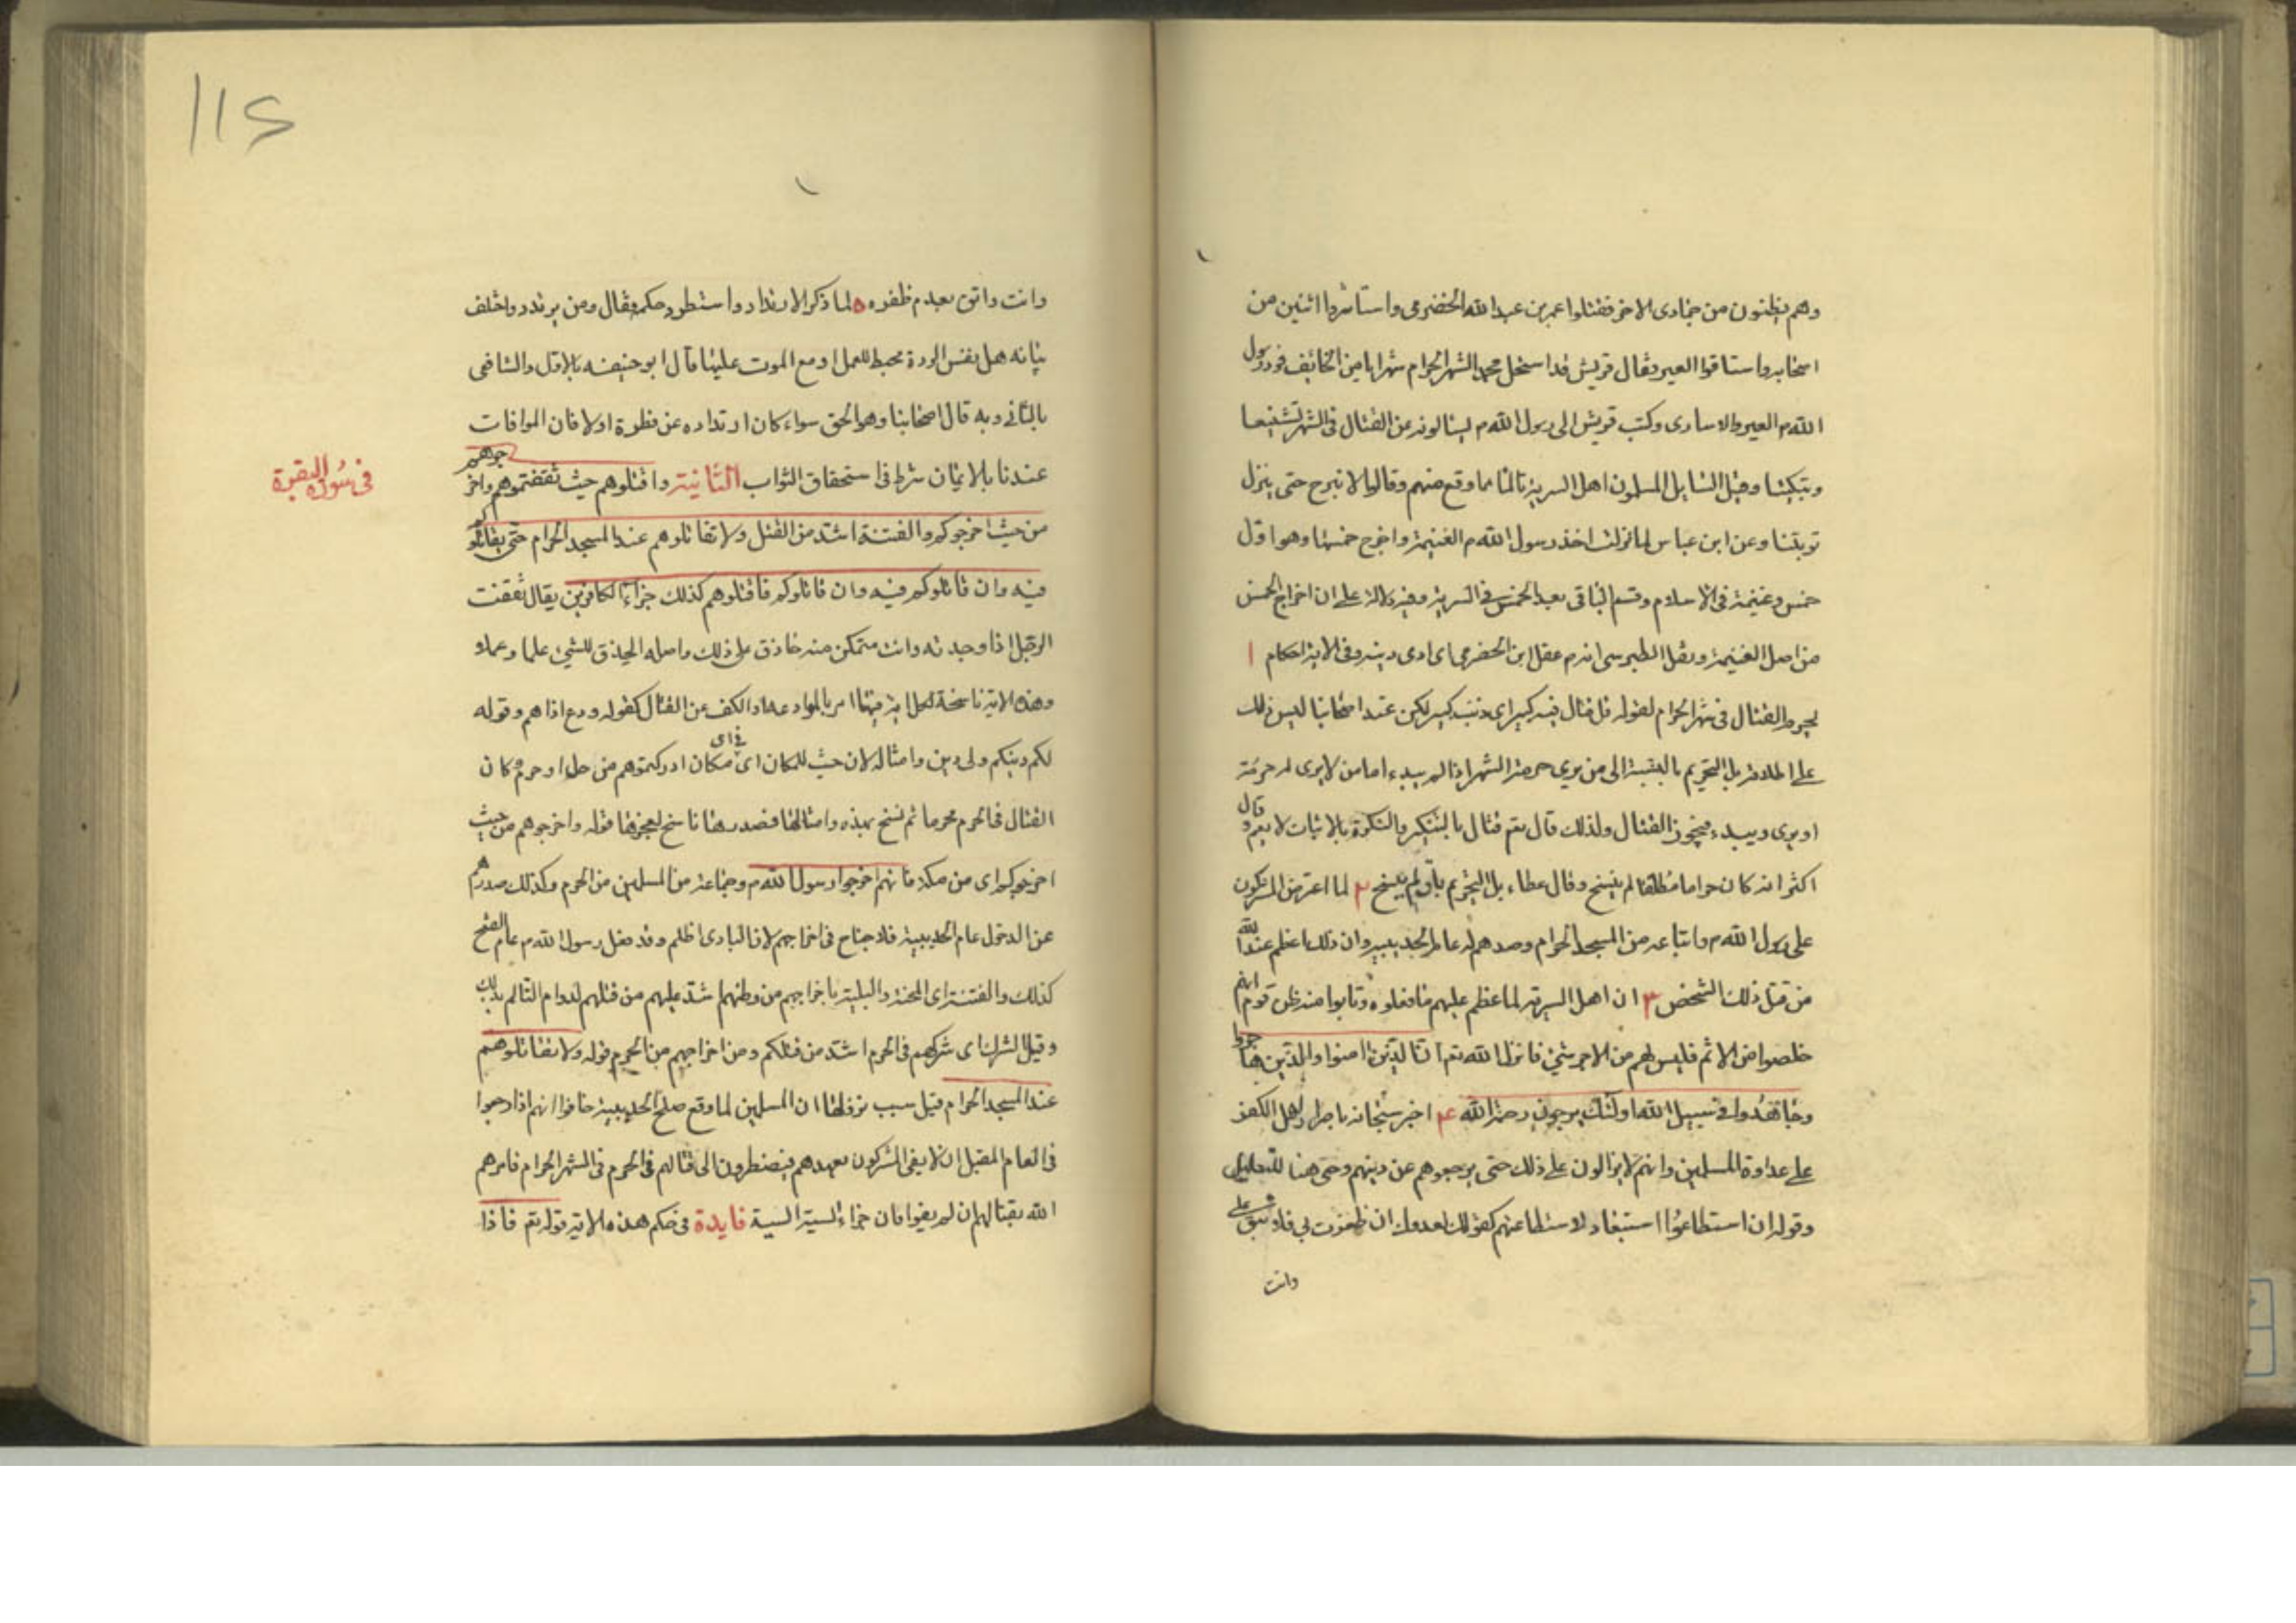 وهم يظنون من جمادى الاخر فقتلوا عمر بن عبد الله الحضرمى واستاسروا اثنين من
اصحابه واستاقوا العير فقال قريش قد استحل محمد الشهر الحرام شهرا يامن الخائف فرد رسول
الله م العير والاسارى وكتب قريش الى رسول الله م ليسالونه عن القتال فى الشهر تشنيعا
وتبكيتا وقيل السايل المسلمون اهل السرية تالما مما وقع منهم وقالوا لا نبرح حتى ينزل
توبتنا وعن ابن عباس لما نزلت اخذ رسول الله م الغنيمة واخرج خمسها وهو اول
خمس وغنيمة فى الاسلام وقسم الباقى بعد الخمس فى السرية وفيه دلالة على ان اخراج الخمس
من اصل الغنيمة ونقل الطبرسى انه م عقل ابن الحضرمى اى ادى ديته وفى الاية احكام ١
يحرم القتال فى شهر الحرام لقوله قل قتال فيه كبير اى ذنب كبير لكن عند اصحابنا ليس ذلك
على اطلاقه بل التحريم بالنسبة الى من يرى حرمة الشهر اذا لم يبدء اما من لا يرى له حرمة
او يرى ويبدء فيجوز القتال ولذلك قال تعم قتال بالتنكير والنكرة بالاثبات لا يعم وقال
اكثر انه كان حراما مطلقا لم ينسخ وقال عطاء بل التحريم باق لم ينسخ ٢ لما اعترض المشركون
على رسول الله م واتباعه من المسجد الحرام وصدهم له عام الحديبية وان ذلك اعظم عند الله
من قتل ذلك الشخص ٣ ان اهل السرية لما عظم عليهم ما فعلوه وتابوا منه ظن قوم انهم
خلصوا من الاثم فليس لهم من الاجر شئ فانزل الله تعم ان الذين امنوا والذين هاجروا
وجاهدوا فى سبيل الله اولئك يرجون رحمة الله ۴ اخبر سبحانه باصرار اهل الكفر
على عداوة المسلمين وانهم لا يزالون على ذلك حتى يرجعوهم عن دينهم وحتى هنا للتعليل
وقوله ان استطاعوا استبعاد لاستطاعتهم كقولك لعدوك ان ظفرت بى فلا تبق على
وانت
١١٤
وانت واثق بعدم ظفره ه لما ذكر الارتداد واستطرد حكمه فقال ومن يرتدد واختلف
بيانه هل بنفس الردة محبط للعمل او مع الموت عليها قال ابو حنيفه بالاول والشافعى
بالثانى وبه قال اصحابنا وهو الحق سواء كان ارتداده عن فطرة اولا فان الموافات
عندنا بالايمان شرط فى استحقاق الثواب الثانية واقتلوهم حيث ثقفتموهم واخرجوهم
فى سورة البقرة
من حيث اخرجوكم والفتنة اشد من القتل ولا تقاتلوهم عند المسجد الحرام حتى يقاتلوكم
فيه وان قاتلوكم فيه وان قاتلوكم فاقتلوهم كذلك جزاء الكافرين يقال ثقفت
الرجل اذا وجدته وانت متمكن منه حاذق على ذلك واصله الحذق للشئ علما وعملا
وهذه الاية ناسخة لكل اية فيها امر بالموادعة او الكف عن القتال كقوله ودع اذاهم وقوله
لكم دينكم ولى دين وامثاله لان حيث للمكان اى فى اى مكان ادركتموهم من حل او حرم وكان
القتال فى الحرم محرما ثم نسخ بهذه وامثالها فصدرها ناسخ لعجزها قوله واخرجوهم من حيث
اخرجوكم اى من مكة فانهم اخرجوا رسول الله م وجماعة من المسلمين من الحرم وكذلك صدهم
عن الدخول عام الحديبية فلا جناح فى اخراجهم لان البادى اظلم وقد فعل رسول الله م عام الفتح
كذلك والفتنة اى المحنة والبلية باخراجهم من وطنهم اشد عليهم من قتلهم لدوام التالم بذلك
وقيل الشرك اى شركهم فى الحرم اشد من قتلكم ومن اخراجهم من الحرم قوله ولا تقاتلوهم
عند المسجد الحرام قيل سبب نزولها ان المسلمين لما وقع صلح الحديبية خافوا انهم اذا رجعوا
فى العام المقبل ان لا يفى المشركون بعهدهم فيضطرون الى قتالهم فى الحرم فى الشهر الحرام فامرهم
الله بقتالهم ان لم يفوا فان جزاء السيئة السيئة فايدة فى حكم هذه الاية قوله تعم فاذا